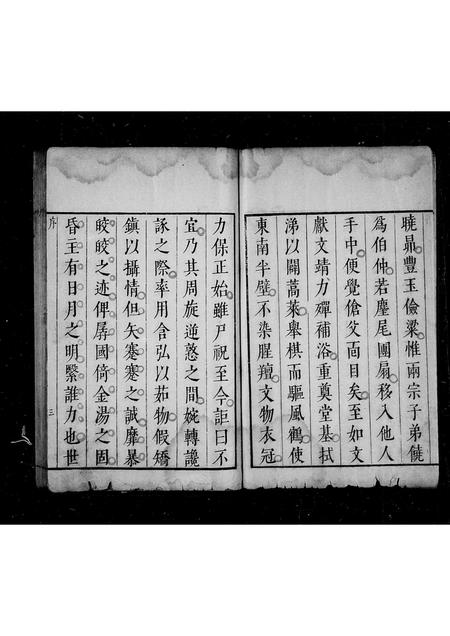 曉鼎豐玉儉粱惟兩宗子弟饒
為伯仲若麈尾團扇移入他人
手中便覺傖父面目矣至如文
獻文靖力殫補浴重奠堂基拭
涕以闢蒿萊舉棋而驅風鶴使
東南半壁不染腥羶文物衣冠
力保正始雖尸祝至今詎曰不
宜乃其周旋逆憝之間婉轉讒
諑之際率用含弘以茹物假矯
鎮以攝情但矢蹇蹇之誠靡暴
皎皎之迹俾孱國倚金湯之固
昏主有日月之明繫誰力也世
序
三